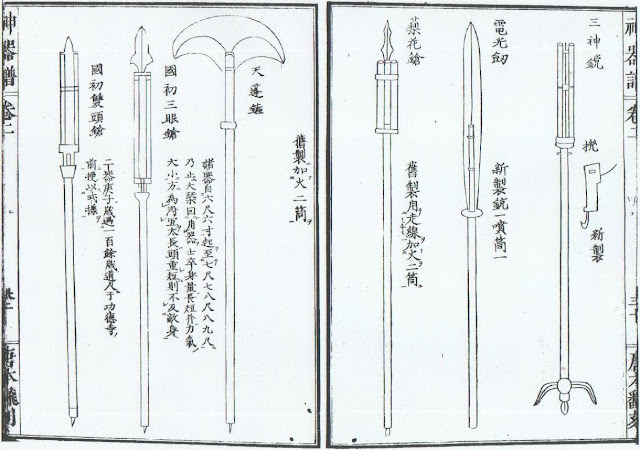 神器譜 卷二
三神
新製
電光劒
新製銃一噴筒一
梨花鎗
舊製用走線加火二筒
三十
唐本翻刻
天蓬鏟
舊製加火二筒
諸器自六尺六寸起至七尺七八尺八九尺
乃止大槩因用器士卒身量長短并力氣
大小方為得宜太長頭重短則不及敵身
國初三眼鎗
國初雙頭鎗
二器庚子歲遇一百餘歲道人于功德寺
前授以式樣
神器譜 卷二
唐本翻刻